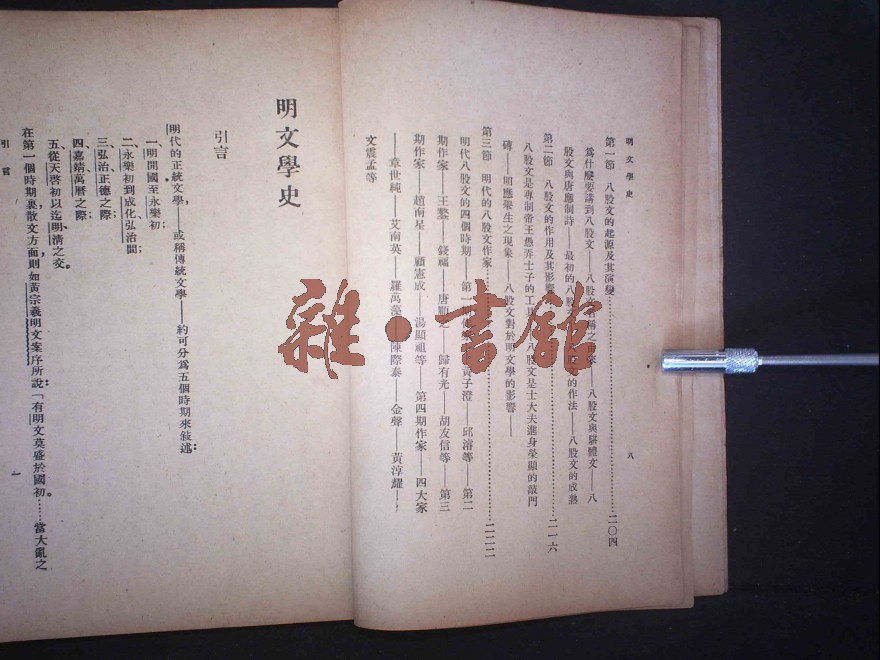 明文學史
八
第一節 八股文的起源及其演變……二〇四
爲什麼要講到八股文——八股文名稱之
——八股文與駢體文——八
股文與唐應制詩——最初的八股文
的作法——八股文的成熟
第二節 八股文的作用及其影響……二一六
八股文是專制帝王愚弄士子的工具
八股文是士大夫進身榮顯的敲門
磚——明應舉生之現象——八股文對於明文學的影響——
第三節 明代的八股文作家……二二二
明代八股文的四個時期——第一
黃子澄——邱濬等——第二
期作家——王鏊——錢福——唐順之——歸有光——胡友信等——第三
期作家——趙南星——顧憲成——湯顯祖等——第四期作家——四大家
——章世純——艾南英——羅萬藻
陳際泰——金聲——黃淳耀——
文震孟等
雜·書館
明文學史
引言
明代的正統文學,——或稱傳統文學——約可分爲五個時期來敍述:
一、明開國至永樂初
二、永樂初到成化弘治間;
三、弘治正德之際;
四、嘉靖萬曆之際;
五、從天啓初以迄明清之交。
在第一個時期裏散文方面,則如黃宗羲明文案序所說:「有明文莫盛於國初。……當大亂之
引言
一